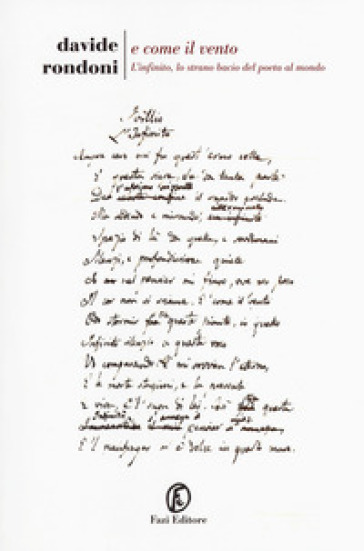 davide
rondoni
e come il vento
L'infinito, lo strano bacio del poeta al mondo
Idillio
L'Infinito
Sempre caro mi fu quest' colle,
E questa siepe, che da tanta parte
il guardo esclude.
Ma sedendo e mirando,
Spazio di là da quella, e sovrumani
Silenzi, e profondissima quiete
Io nel pensier mi fingo, ove per poco
Il cor non si spaura. E come il vento
Odo stormir fra queste piante, io quello
Infinito silenzio a questa voce
Vo comparando: e mi sovvien l'eterno,
E le morte stagioni, e la presente
E viva, e 'l suon di lei. Così questa
E 'l naufragar m'è dolce in questo mare.
Fazi Editore